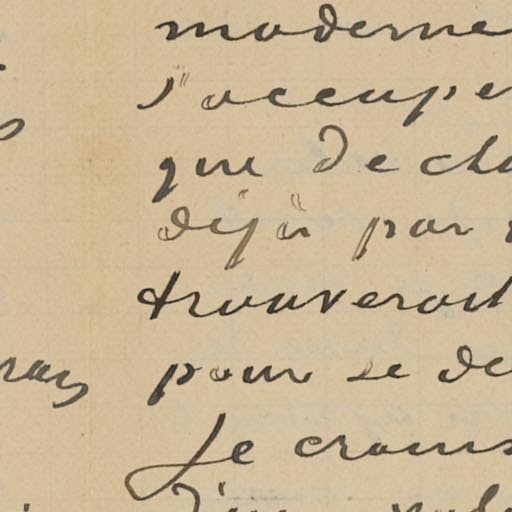 moderne
s'occupe
que de
déjà par
trouverait
pour se
Je crains